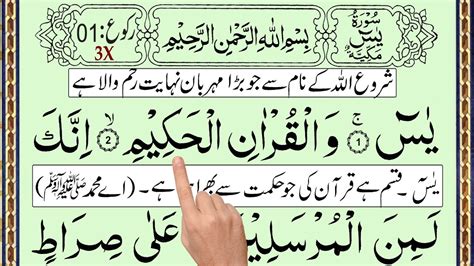 سُورَةُ يٰسٓ مَكِّيَّةٌ
بِسْمِ اللهِ الرَّحْمٰنِ الرَّحِيْمِ
رکوع :01
3X
شروع اللہ کے نام سے جو بڑا مہربان نہایت رحم والا ہے
يٰسٓ ۚ ۝1 وَالْقُرْاٰنِ الْحَكِيْمِ ۙ ۝2 اِنَّكَ
یٰسٓ ۔ قسم ہے قرآن کی جو حکمت سے بھرا ہے ۔ (اے محمد ﷺ)
لَمِنَ الْمُرْسَلِيْنَ عَلٰى صِرَاطٍ